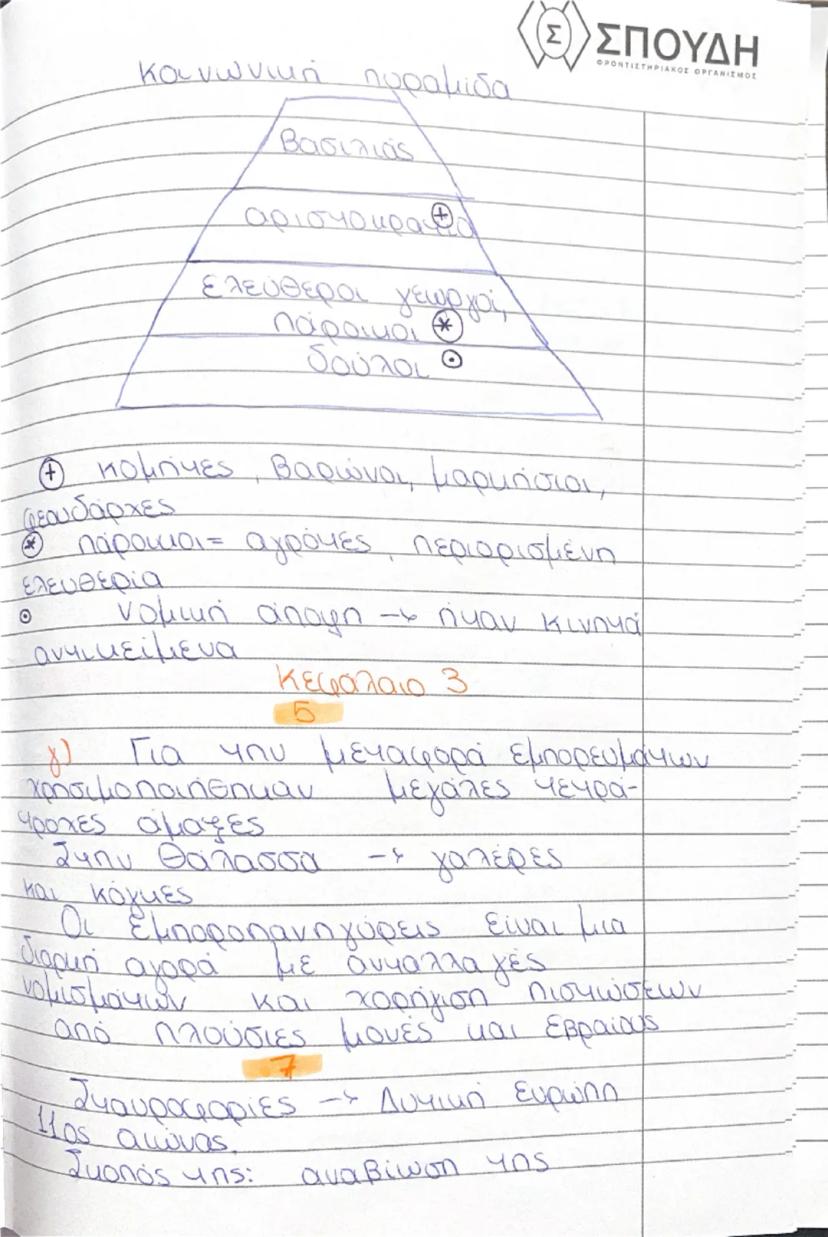 ΣΠΟΥΔΗ
ΦΡΟΝΤΙΣΤΗΡΙΑΚΟΣ ΟΡΓΑΝΙΣΜΟΣ
Κοινωνική πυραμίδα
Βασιλιάς
αριστοκρατία ⊕
ελεύθεροι γεωργοί,
πάροικοι ⊛
δούλοι ⊙
⊕ κομήτες, Βαρώνοι, μαρκήσιοι,
φεουδάρχες
⊛ πάροικοι = αγρότες, περιορισμένη
ελευθερία
⊙ νομική άποψη → ήταν κινητά
αντικείμενα
Κεφάλαιο 3
5
γ) Για την μεταφορά εμπορευμάτων
χρησιμοποιήθηκαν μεγάλες τετρά-
τροχες άμαξες
Στην Θάλασσα → γαλέρες
και κόγκες
Οι εμποροπανηγύρεις είναι μια
διαρκή αγορά με ανταλλαγές
νομισμάτων και χορήγιση πιστώσεων
από πλούσιες μονές και Εβραίους
7
Σταυροφορίες → Δυτική Ευρώπη
11ος αιώνας.
Σκοπός της: αναβίωση της